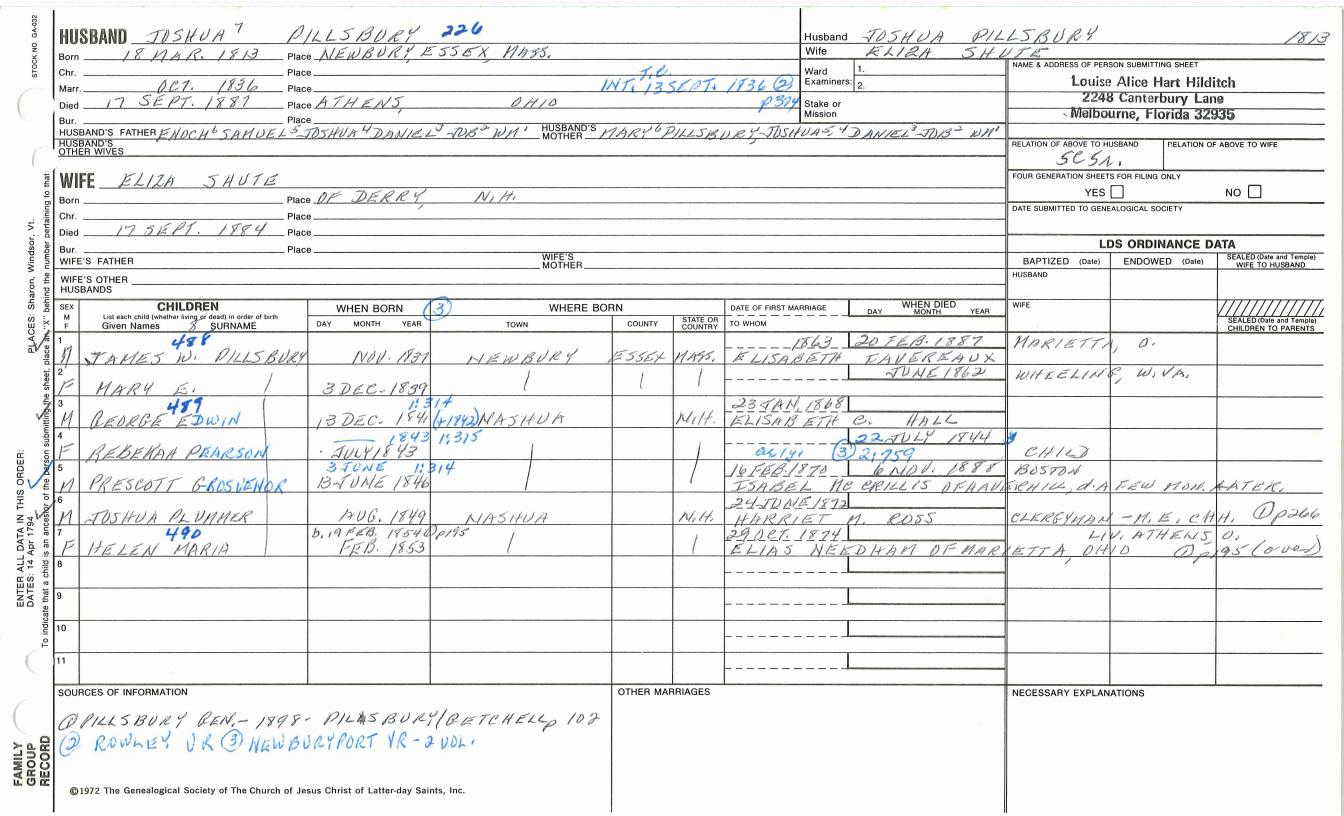 STOCK NO. GA-032
HUSBAND JOSHUA 7 PILLSBURY 226
Born 18 MAR. 1813 Place NEWBURY, ESSEX, MASS.
Chr. Place
Marr. OCT. 1836 Place INT. 13 SEPT. 1836 ② p324
Died 17 SEPT. 1887 Place ATHENS, OHIO
Bur. Place
HUSBAND'S FATHER ENOCH 6 SAMUEL 5 JOSHUA 4 DANIEL 3 JOB 2 WM 1 HUSBAND'S MOTHER MARY 6 PILLSBURY, JOSHUA 5 4 DANIEL 3 JOB 2 WM 1
HUSBAND'S OTHER WIVES
WIFE ELIZA SHUTE
Born Place OF DERRY, N.H.
Chr. Place
Died 17 SEPT. 1884 Place
Bur. Place
WIFE'S FATHER WIFE'S MOTHER
WIFE'S OTHER HUSBANDS
Husband JOSHUA PILLSBURY 1813
Wife ELIZA SHUTE
Ward Examiners: 1. 2.
Stake or Mission
NAME & ADDRESS OF PERSON SUBMITTING SHEET
Louise Alice Hart Hilditch
2248 Canterbury Lane
Melbourne, Florida 32935
RELATION OF ABOVE TO HUSBAND RELATION OF ABOVE TO WIFE
5C5r.
FOUR GENERATION SHEETS FOR FILING ONLY
YES NO
DATE SUBMITTED TO GENEALOGICAL SOCIETY
LDS ORDINANCE DATA
BAPTIZED (Date) ENDOWED (Date) SEALED (Date and Temple) WIFE TO HUSBAND
HUSBAND
WIFE
SEALED (Date and Temple) CHILDREN TO PARENTS
SEX M F
CHILDREN
List each child (whether living or dead) in order of birth
Given Names 8 SURNAME
WHEN BORN ③
DAY MONTH YEAR
WHERE BORN
TOWN COUNTY STATE OR COUNTRY
DATE OF FIRST MARRIAGE
TO WHOM
WHEN DIED
DAY MONTH YEAR
1 488 1863 20 FEB. 1887
M JAMES W. PILLSBURY NOV. 1837 NEWBURY ESSEX MASS. ELISABETH FAVEREAUX MARIETTA, O.
2 JUNE 1862
F MARY E. 3 DEC. 1839 WHEELING, W.VA.
3 489 1:314 23 JAN. 1868
M GEORGE EDWIN 13 DEC. 1841 (+1842) NASHUA N.H. ELISABETH C. HALL
4 1843 1:315 22 JULY 1844
F REBEKAH PEARSON JULY 1843 ③ 2:759 CHILD
5 3 JUNE 1:314 16 FEB. 1870 6 NOV. 1888 BOSTON
M PRESCOTT GROSVENOR 13 JUNE 1846 ISABEL MC CRILLIS OF HAVERHILL, d. A FEW MON. LATER.
6 24 JUNE 1872
M JOSHUA PLUMMER AUG. 1849 NASHUA N.H. HARRIET M. ROSS CLERGYMAN - M.E. CHH. ① p266
7 490 b. 19 FEB. 1854 ① p195 29 OCT. 1874 LIV. ATHENS, O.
F HELEN MARIA FEB. 1853 ELIAS NEEDHAM OF MARIETTA, OHIO ① p195 (over)
8
9
10
11
SOURCES OF INFORMATION
① PILLSBURY GEN. - 1898 - PILLSBURY/GETCHELL p 102
② ROWLEY VR ③ NEWBURYPORT VR - 2 VOL.
OTHER MARRIAGES
NECESSARY EXPLANATIONS
©1972 The Genealogical Society of The Church of Jesus Christ of Latter-day Saints, Inc.
FAMILY GROUP RECORD
ENTER ALL DATA IN THIS ORDER:
DATES: 14 Apr 1794
PLACES: Sharon, Windsor, Vt.
To indicate that a child is an ancestor of the person submitting the sheet, place an "X" behind the number pertaining to that